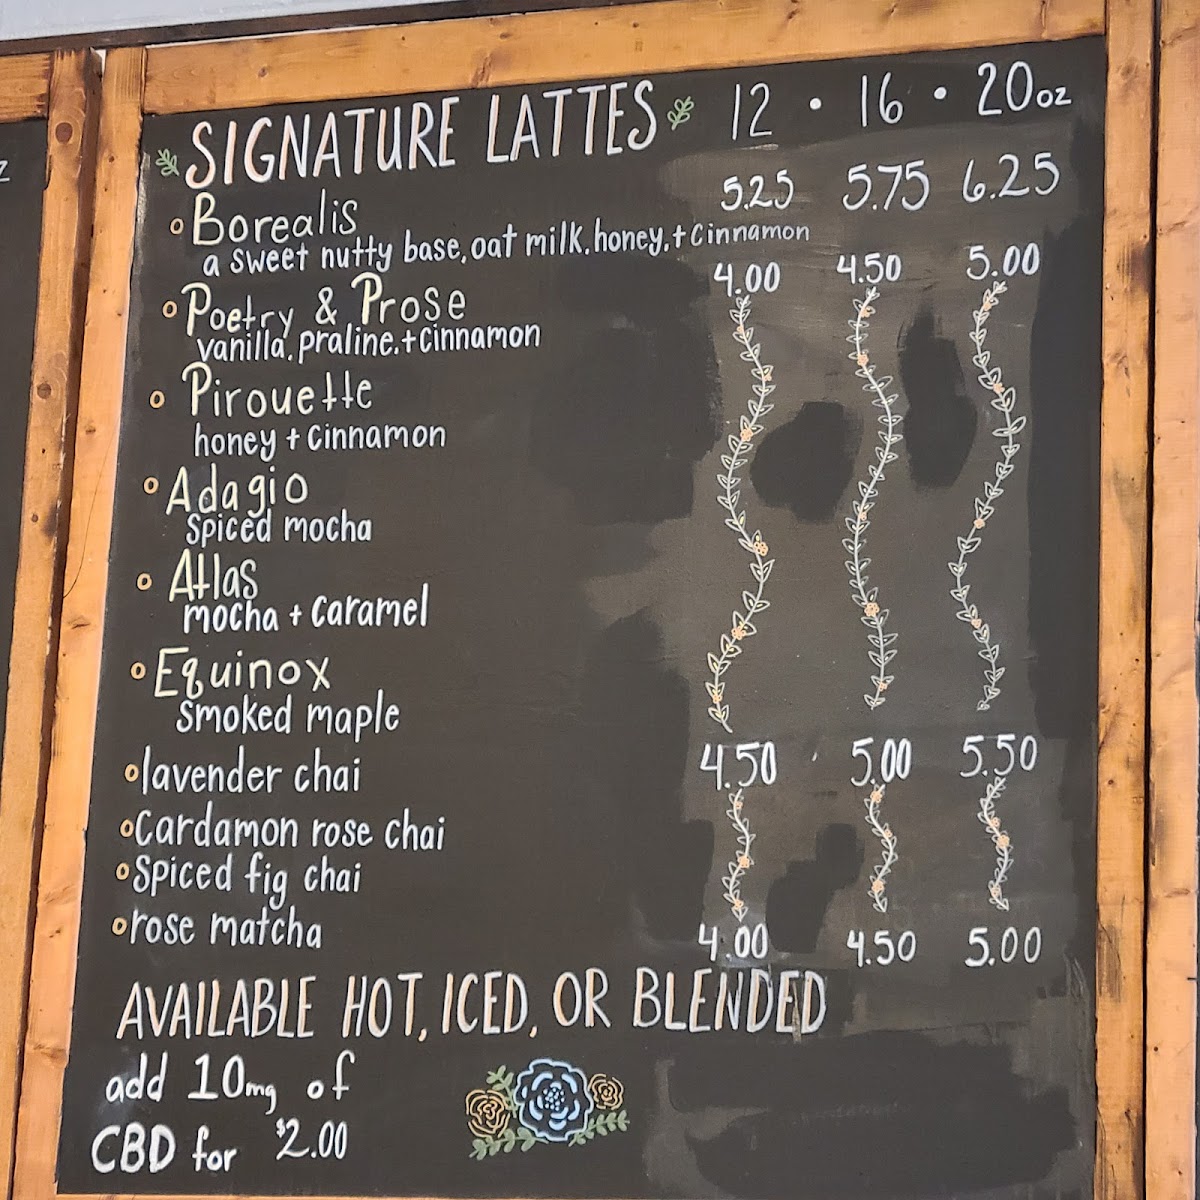 SIGNATURE LATTES 12 • 16 • 20oz
Borealis 5.25 5.75 6.25
a sweet nutty base, oat milk, honey, + cinnamon
Poetry & Prose 4.00 4.50 5.00
vanilla, praline, + cinnamon
Pirouette
honey + cinnamon
Adagio
Spiced mocha
Atlas
mocha + caramel
Equinox
Smoked maple
lavender chai 4.50 5.00 5.50
Cardamon rose chai
Spiced fig chai
rose matcha 4.00 4.50 5.00
AVAILABLE HOT, ICED, OR BLENDED
add 10mg of
CBD for $2.00